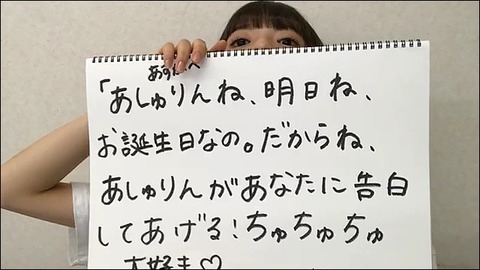 「あしゅりんね、明日ね、
お誕生日なの。だからね、
あしゅりんがあなたに告白
してあげる!ちゅちゅちゅ
大好き♡